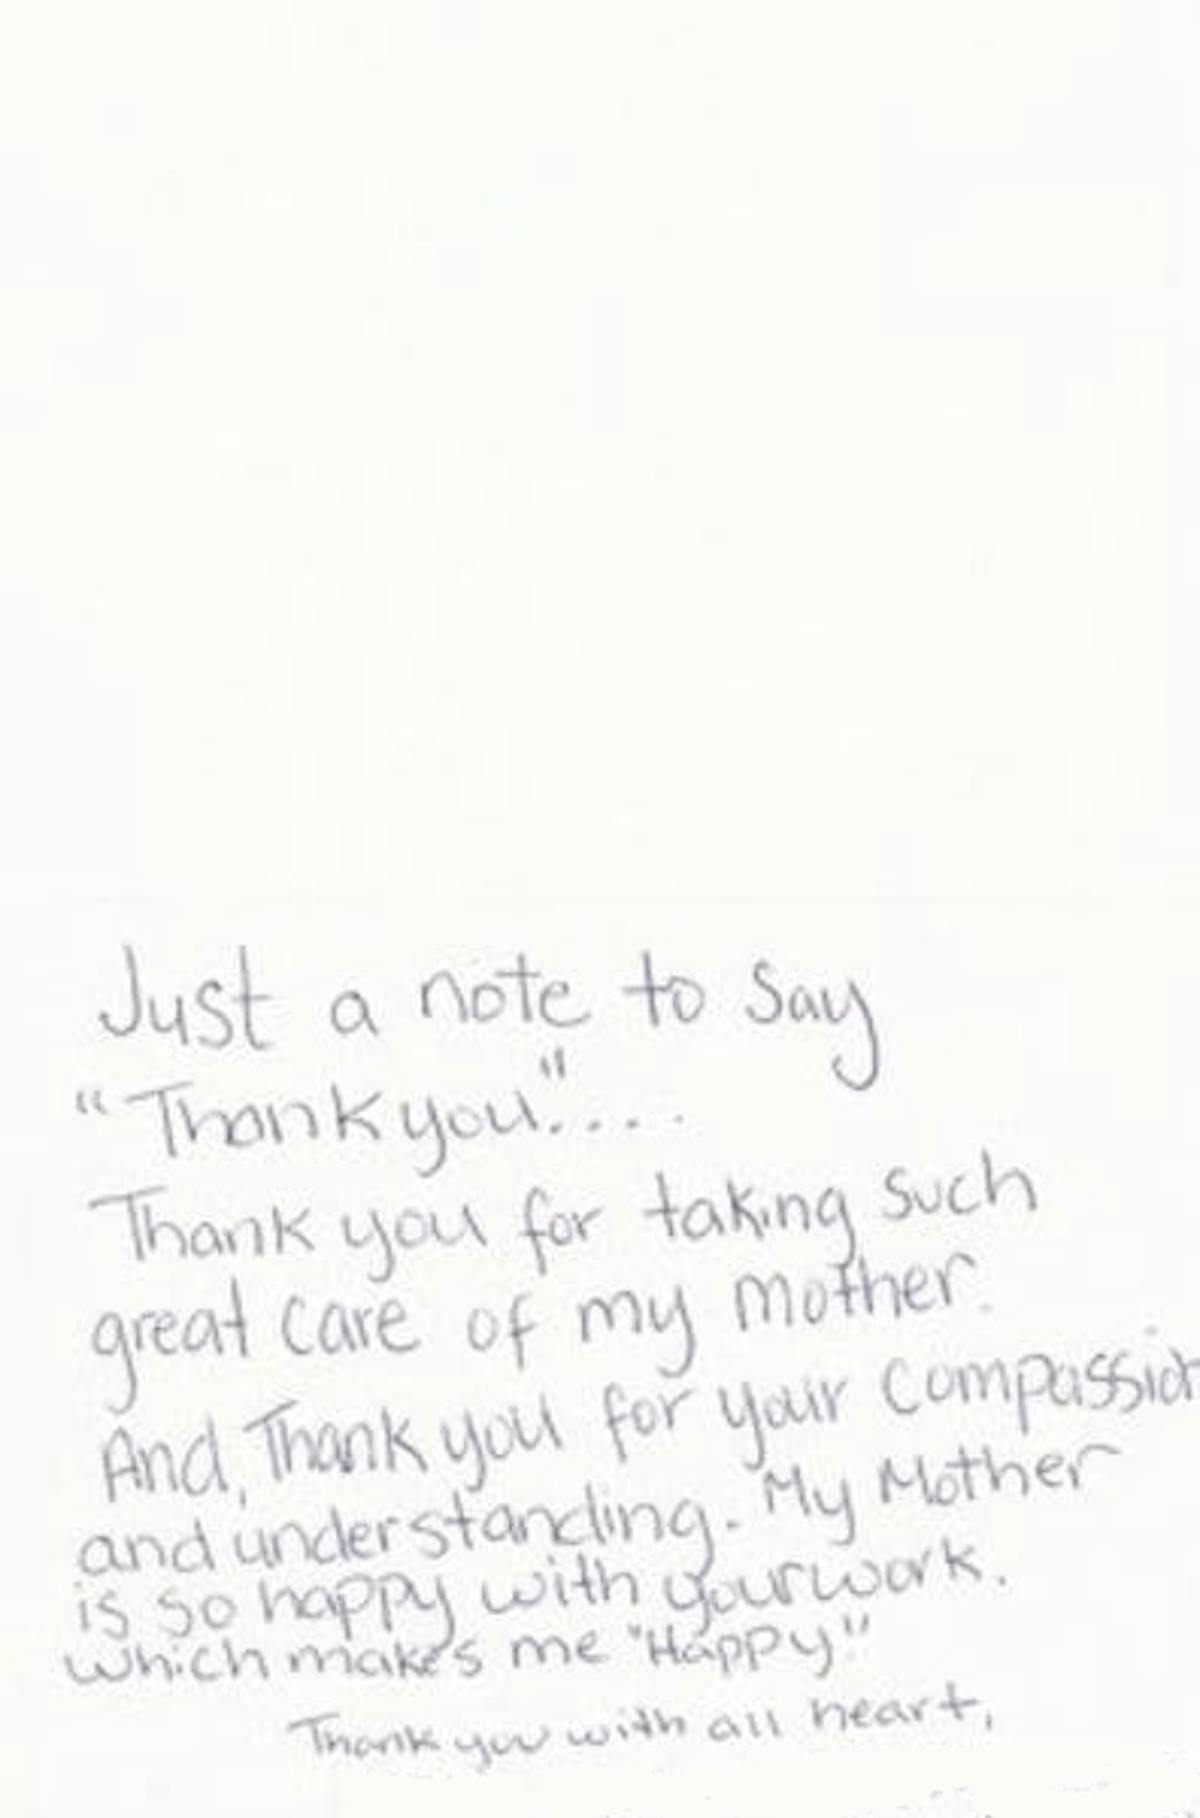 Just a note to say
"Thank you"....
Thank you for taking such
great care of my mother.
And, Thank you for your compassion
and understanding. My Mother
is so happy with your work.
which makes me "Happy"
Thank you with all heart,